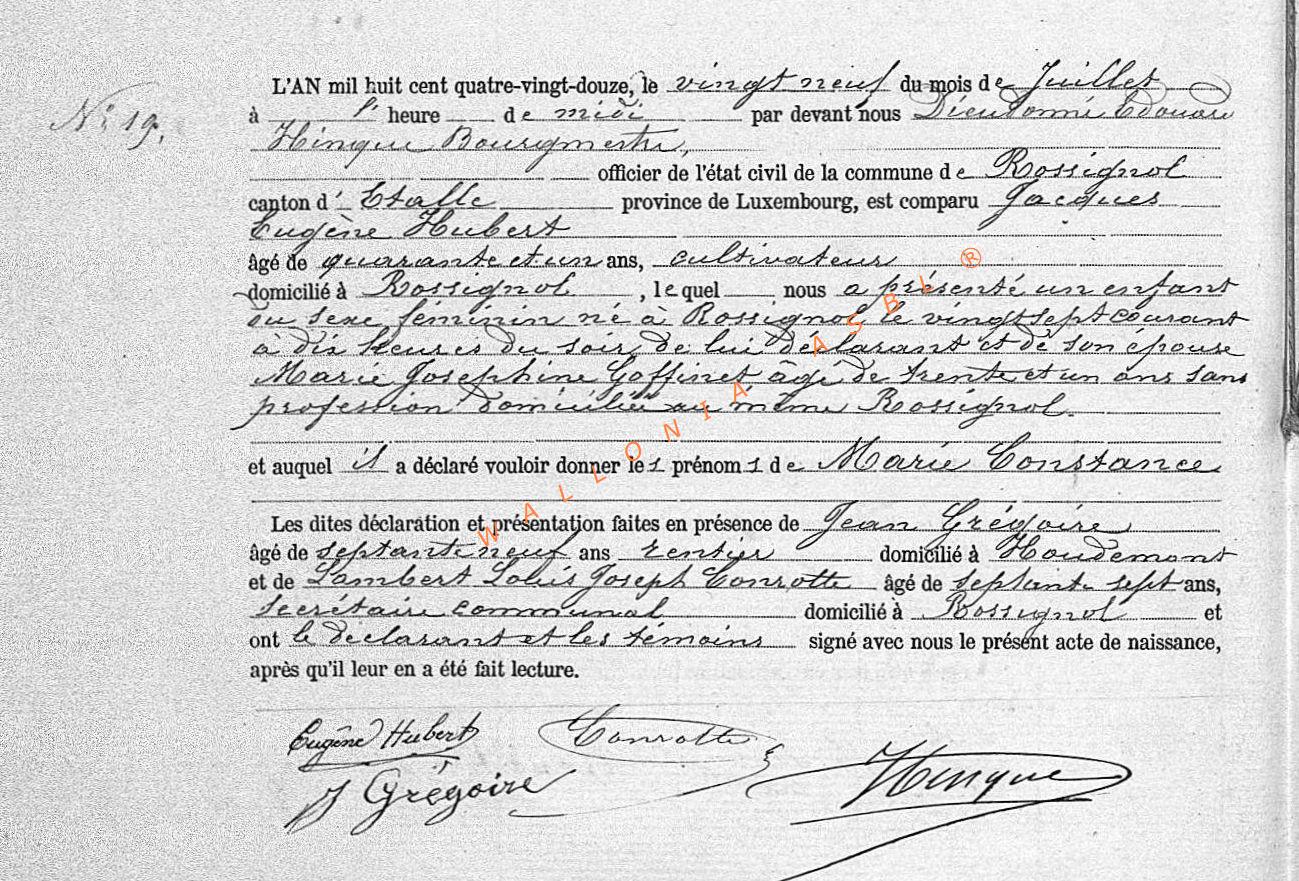 L'AN mil huit cent quatre-vingt-douze, le vingt neuf du mois de Juillet
N° 19.
à l' heure de midi par devant nous Dieudonné Edouard
Hinque Bourgmestre,
officier de l'état civil de la commune de Rossignol
canton d' Etalle province de Luxembourg, est comparu Jacques
Eugène Hubert
âgé de quarante et un ans, cultivateur
domicilié à Rossignol, lequel nous a présenté un enfant
du sexe féminin né à Rossignol le vingt sept courant
à dix heures du soir, de lui déclarant et de son épouse
Marie Josephine Goffinet âgé de trente et un ans sans
profession domiciliée au même Rossignol.
et auquel il a déclaré vouloir donner les prénoms de Marie Constance
Les dites déclaration et présentation faites en présence de Jean Grégoire
âgé de septante neuf ans rentier domicilié à Houdemont
et de Lambert Louis Joseph Conrotte âgé de septante sept ans,
secrétaire communal domicilié à Rossignol et
ont le declarant et les témoins signé avec nous le présent acte de naissance,
après qu'il leur en a été fait lecture.
Eugène Hubert Conrotte
J Grégoire Hinque
WALLONIA ASBL ®